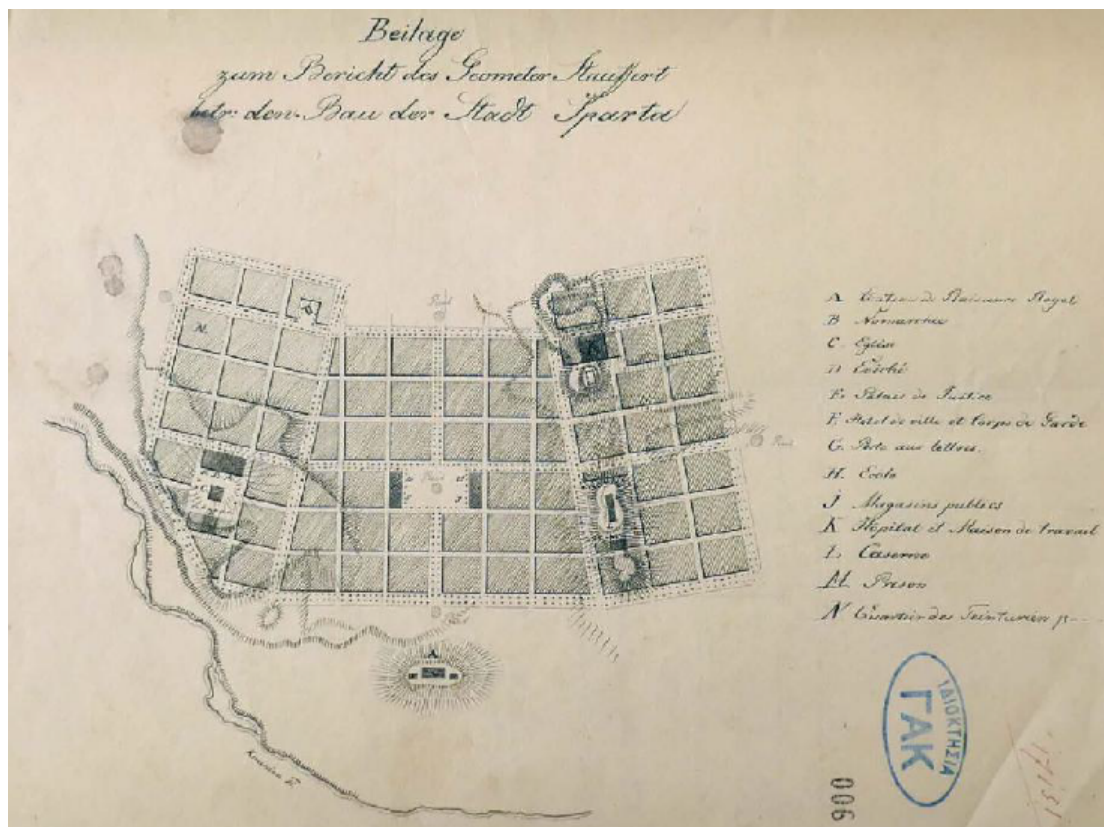 Beilage
zum Bericht des Geometer Stauffert
betr. den Bau der Stadt Sparta
A Chateau de Plaisance Royal
B Nomarchie
C Eglise
D Evêché
E Palais de Justice
F Hotel de ville et Corps de Garde
G Poste aux lettres.
H Ecole
J Magasins publics
K Hôpital et Maison de travail
L Caserne
M Prison
N Quartier des Teinturiers
A
ΙΔΙΟΚΤΗΣΙΑ
ΓΑΚ
006